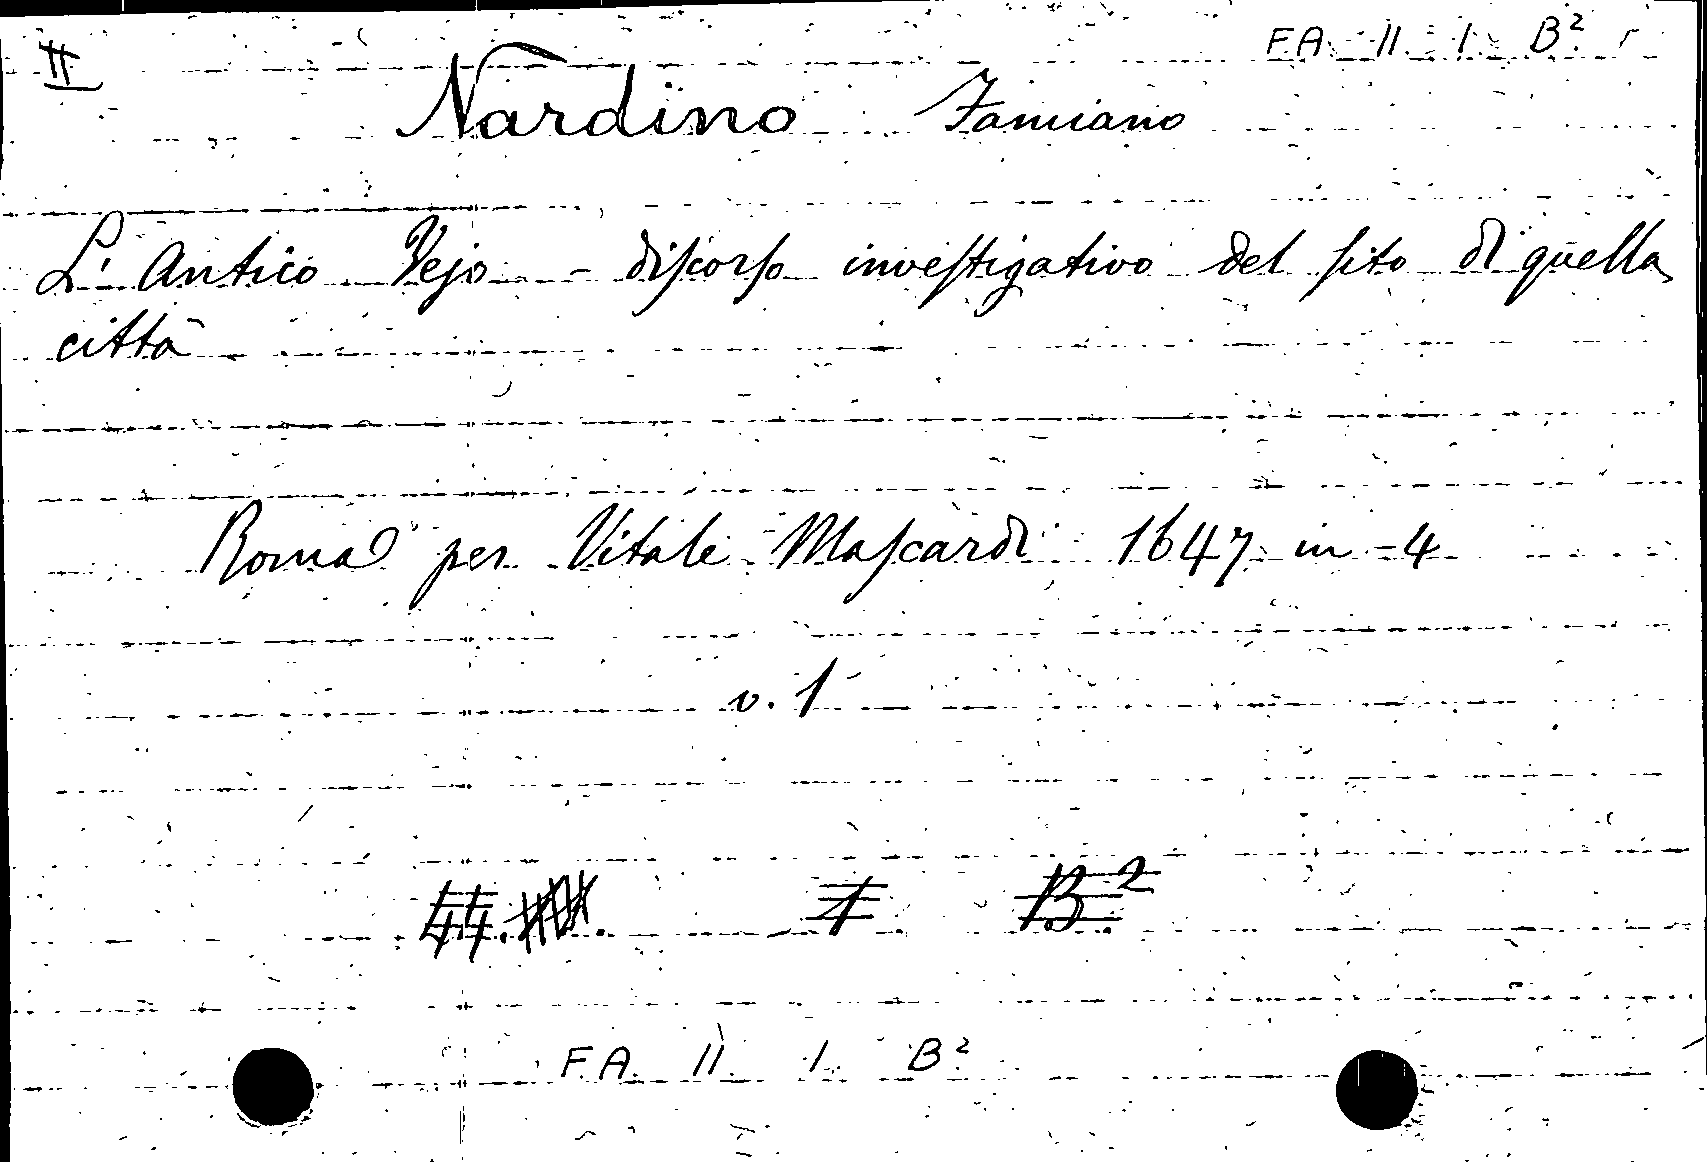 II F.A. II. 1. B².
Nardino Famiano
L'Antico Vejo - discorso investigativo del sito di quella
città
Roma per Vitale Mascardi 1647 in-4
v. 1
1 B²
F.A. II. 1. B².